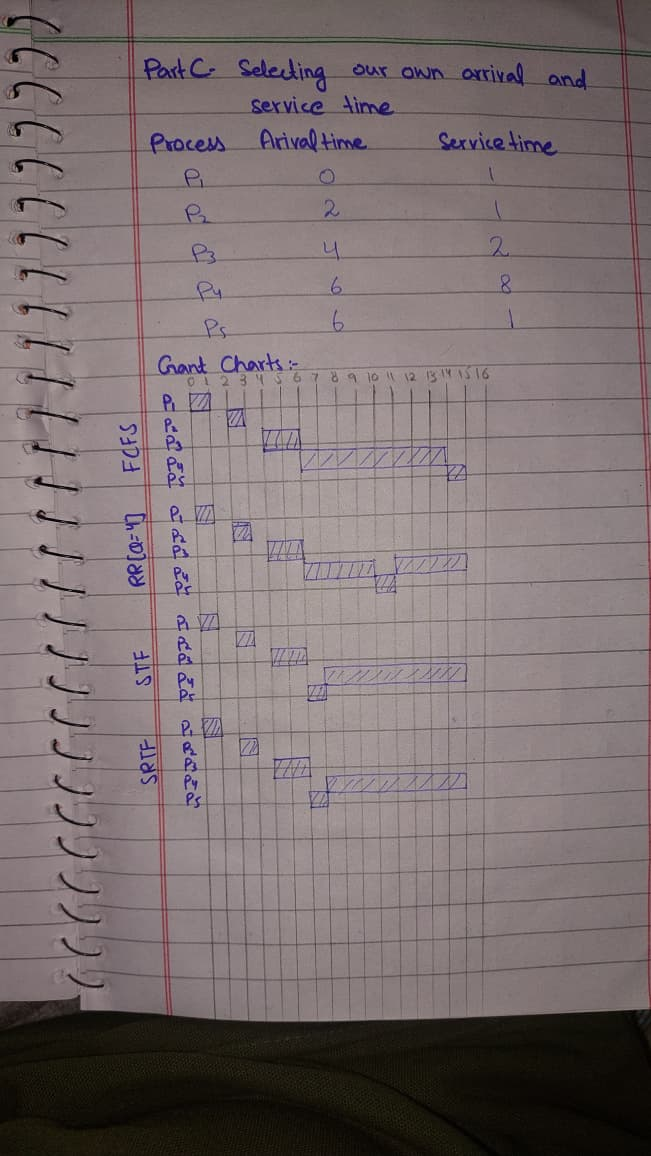 Part C- Selecting our own arrival and
service time
Process Arival time Service time
P1 0 1
P2 2 1
P3 4 2
P4 6 8
P5 6 1
Gant Charts:-
0 1 2 3 4 5 6 7 8 9 10 11 12 13 14 15 16
FCFS
P1
P2
P3
P4
P5
RR[Q=4]
P1
P2
P3
P4
P5
STF
P1
P2
P3
P4
P5
SRTF
P1
P2
P3
P4
P5